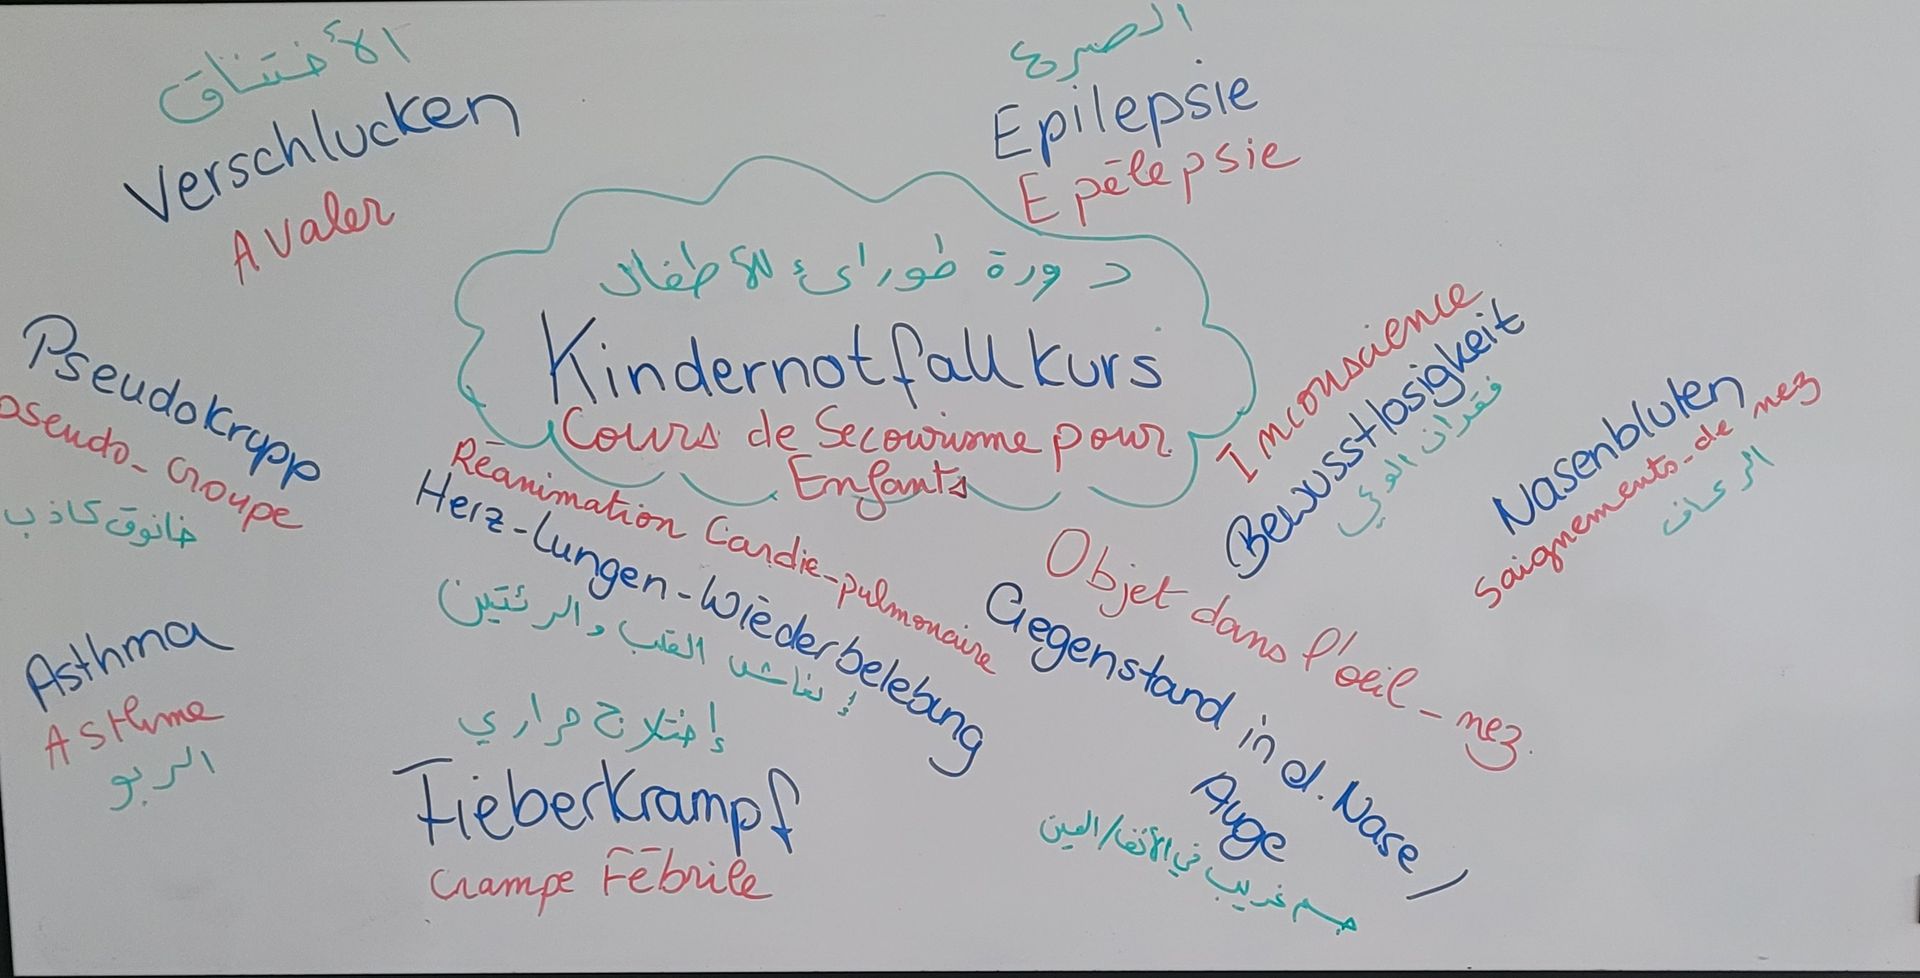 الأختناق
Verschlucken
Avaler
الصرع
Epilepsie
Epēlepsie
دورة طورائ للأطفال
Kindernotfallkurs
Cours de Secourisme pour
Enfants
Pseudokrupp
pseudo-Croupe
خانوق كاذب
Asthma
Asthme
الربو
Rēanimation Cardie-pulmonaire
Herz-Lungen-Wiederbelebung
القلب والرئتين
إختلاج حراري
Fieberkrampf
Crampe Fēbrile
Inconscience
Bewusstlosigkeit
فقدان الوعي
Nasenbluten
Saignements-de nez
الرعاف
Objet dans l'oeil-nez.
Gegenstand in d. Nase/
Auge
جسم غريب في الأنف/العين